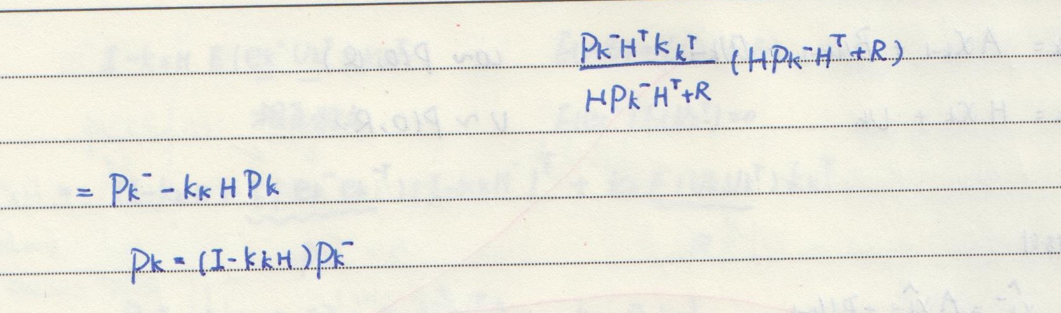 Pk⁻HᵀKkᵀ / HPk⁻Hᵀ+R (HPk⁻Hᵀ+R)
= Pk⁻ - KkHPk
Pk = (I-KkH)Pk⁻